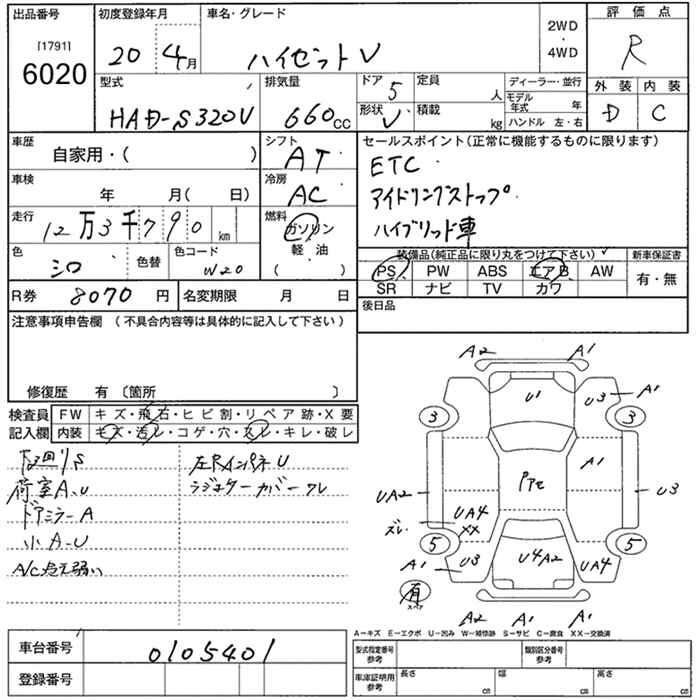 出品番号
[1791]
6020
初度登録年月
20 4月
車名・グレード
ハイゼットV
2WD
・
4WD
評価点
R
外装 内装
D C
型式
HAD-S320V
排気量
660cc
ドア 5
形状 V
定員 人
積載 kg
ディーラー・並行
モデル年式 年
ハンドル 左・右
車歴
自家用・( )
シフト
AT
車検
年 月( 日)
冷房
AC
走行
12万3千790km
燃料
ガソリン
軽・油
( )
色
シロ
色替
色コード
W20
R券 8070円
名変期限 月 日
セールスポイント(正常に機能するものに限ります)
ETC
アイドリングストップ
ハイブリッド車
装備品(純正品に限り丸をつけて下さい)
新車保証書
PS PW ABS エアB AW
SR ナビ TV カワ
有・無
後日品
注意事項申告欄 (不具合内容等は具体的に記入して下さい)
修復歴 有〔箇所 〕
検査員記入欄
FW キズ・飛石・ヒビ割・リペア跡・X要
内装 キズ・汚レ・コゲ・穴・スレ・キレ・破レ
荷室A、U
ドアミラーA
小A-U
左RインパネU
A2 A1
U1
U3 A1
3 3
A1
UA2 U3
UA4
XX
ズレ
5 5
A1 U3
U4A2
UA4
有
スペア
A2 A1 A1
A−キズ E−エクボ U−凹ミ W−補修跡 S−サビ C−腐食 XX−交換済
車台番号
0105401
登録番号
型式指定番号
参考
類別区分番号
参考
車庫証明用
参考
長さ cm
幅 cm
高さ cm